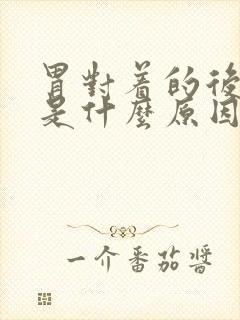 胃對着的後
是什麼原因
一介番茄醬